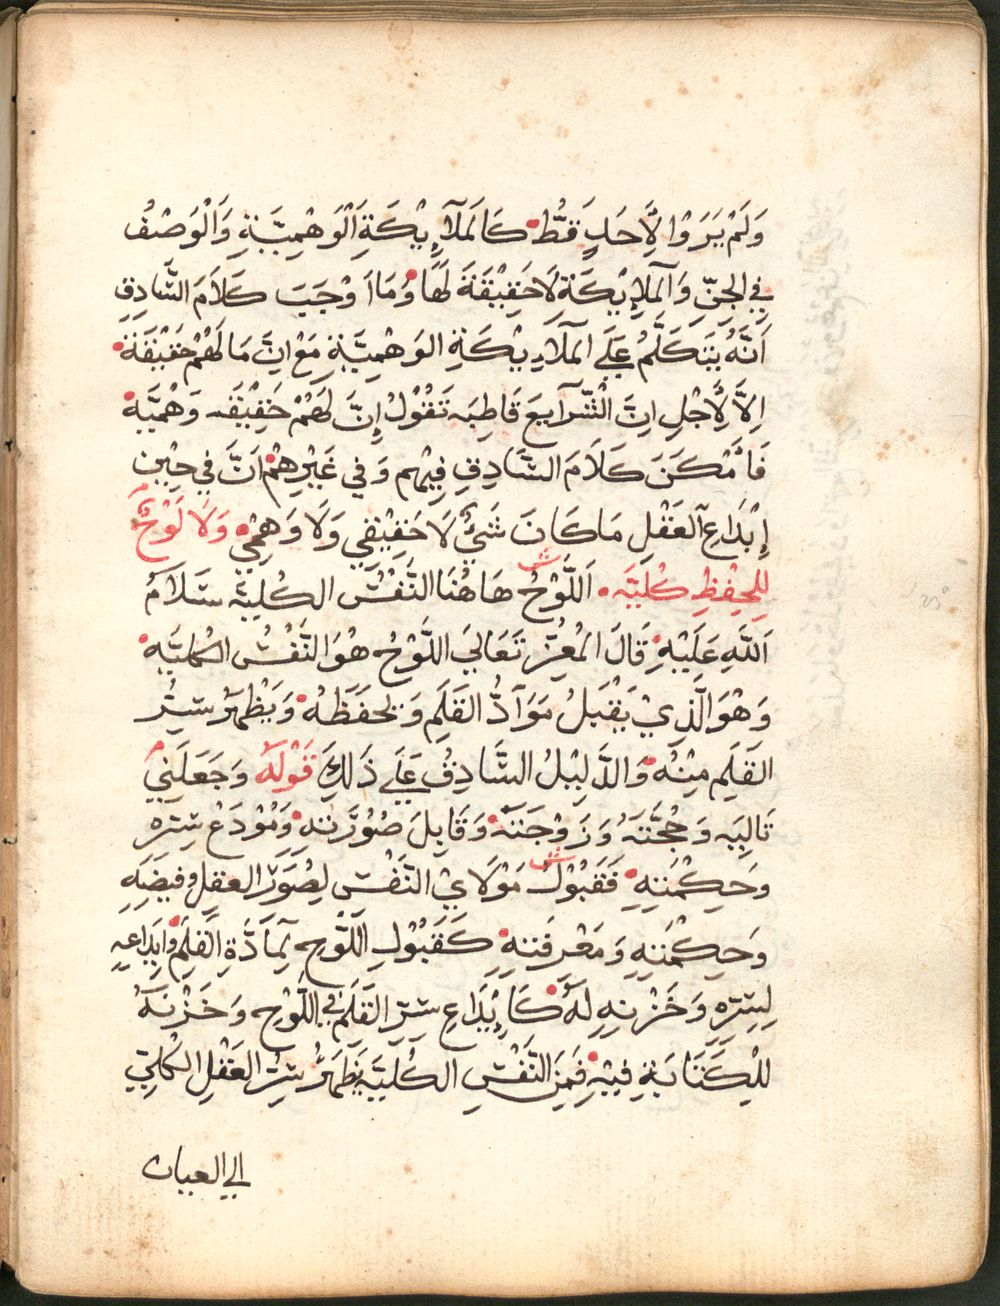 وَلَمْ يَرَوْا لِأَحَدٍ قَطُّ كَالمَلَآئِكَةِ الْوَهْمِيَّةِ وَالْوَصْفُ
فِي الجِنِّ وَالمَلَائِكَةِ لَاحَقِيْقَةَ لَهَا وَمَا اَوْجَبَ كَلَامَ الصَّادِقِ
اَنَّهُ يَتَكَلَّمُ عَلَى المَلَايِكَةِ الوَهْمِيَّةِ مَعْ اِنَّ مَا لَهُمْ حَقِيْقَة
اِلاَّ لِأَجْلِ اِنَّ الشَّرَآيِعَ قَاطِبَه تَقُوْلْ إِنَّ لَهُمْ حَقِيْقَه وَهْمِيَّه
فَأَمْكَنَ كَلَامَ الصَّادِقِ فِيْهِم وَفِي غَيْرِهِمْ اَنَّ فِي حِيْنِ
إِبْدَاعِ العَقْلِ مَا كَانَ شَيْئٌ لَا حَقِيْقِي وَلَا وَهْمِي وَلَا لَوْحٌ
لِلحِفْظِ كُلِّيَّه ش اَللَّوْحُ هَاهُنَا النَّفْسُ الكُلِيَّة سَلَامُ
اَللَّهِ عَلَيْهِ قَالَ المُعِزّ تَعَالَى اللَّوْحُ هُوَ النَّفْسُ الكُلِيَّه
وَهْوَ الَّذِيْ يَقْبَلُ مَوَآدُّ القَلَمِ وَيَحْفَظْهُ وَيَظْهَرُ سِرُّ
القَلَمِ مِنْهُ وَالدَّلِيْلُ الصَّادِقُ عَلَى ذَلِكَ قَوْلَهُ وَجَعَلَنِي
تَالِيَه وَحُجَّتَهُ وَزَوْجَتَهُ وَقَابِلَ صُوْرَتِهِ وَمُوْدَعْ سِرِّه
وَحِكْمَتِهِ ش فَقَبُوْلُ مَوْلَايْ النَّفْس لِصُوَرِ العقل وفيضِهِ
وَحِكْمَتِهِ وَمَعْرِفَتِهِ كَقَبُوْلِ اللَّوْحِ لِمَآدَّةِ القَلَمْ وَايداعِهِ
لِسِرِّهِ وَخَزْنِهِ لَهُ كَإِيْدَاعِ سِرِّ القَلَمْ فِي اللَّوْحِ وَخَزْنَهُ
لِلْكِتَابَةِ فِيْهِ فَمِنَ النَّفْسِ الكُلِيَّه يَظْهَرُ سِرُّ العَقْلِ الكُلِّي
الى العيان